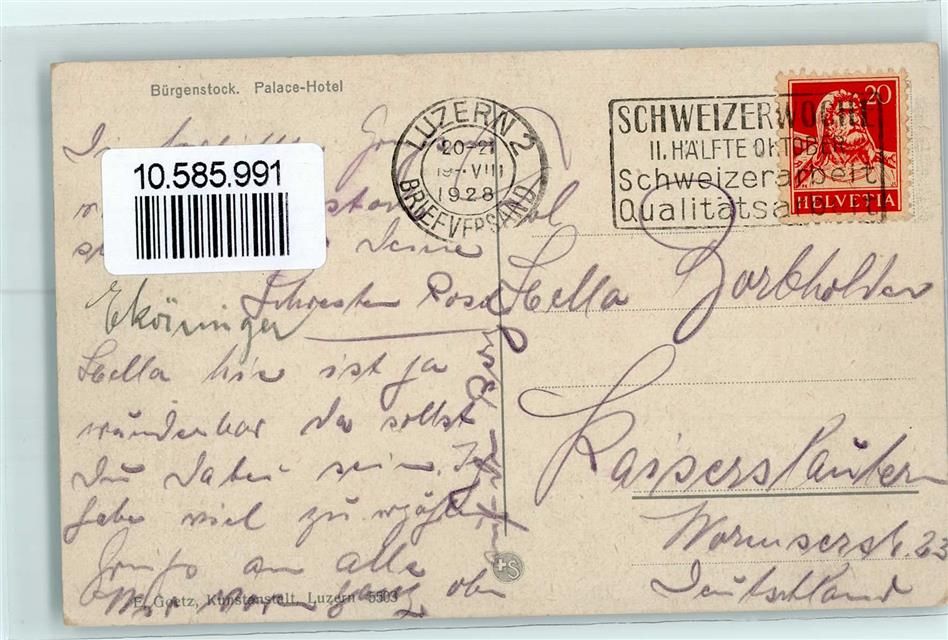 Bürgenstock. Palace-Hotel
10.585.991
LUZERN 2
20-21
19.-VIII
1928
BRIEFVERSAND
SCHWEIZERWOCHE
II. HÄLFTE OKTOBER
Schweizerarbeit
Qualitätsarbeit
20
HELVETIA
Deine
Schwester Rosa
Hella
Hella hir ist ja
wunderbar da sollst
Du dabei sein. Ich
habe viel zu
Gruß an alle
ganz oben
Kaiserslautern
Wormserstr. 23
Deutschland
E. Goetz, Kunstanstalt, Luzern 5503